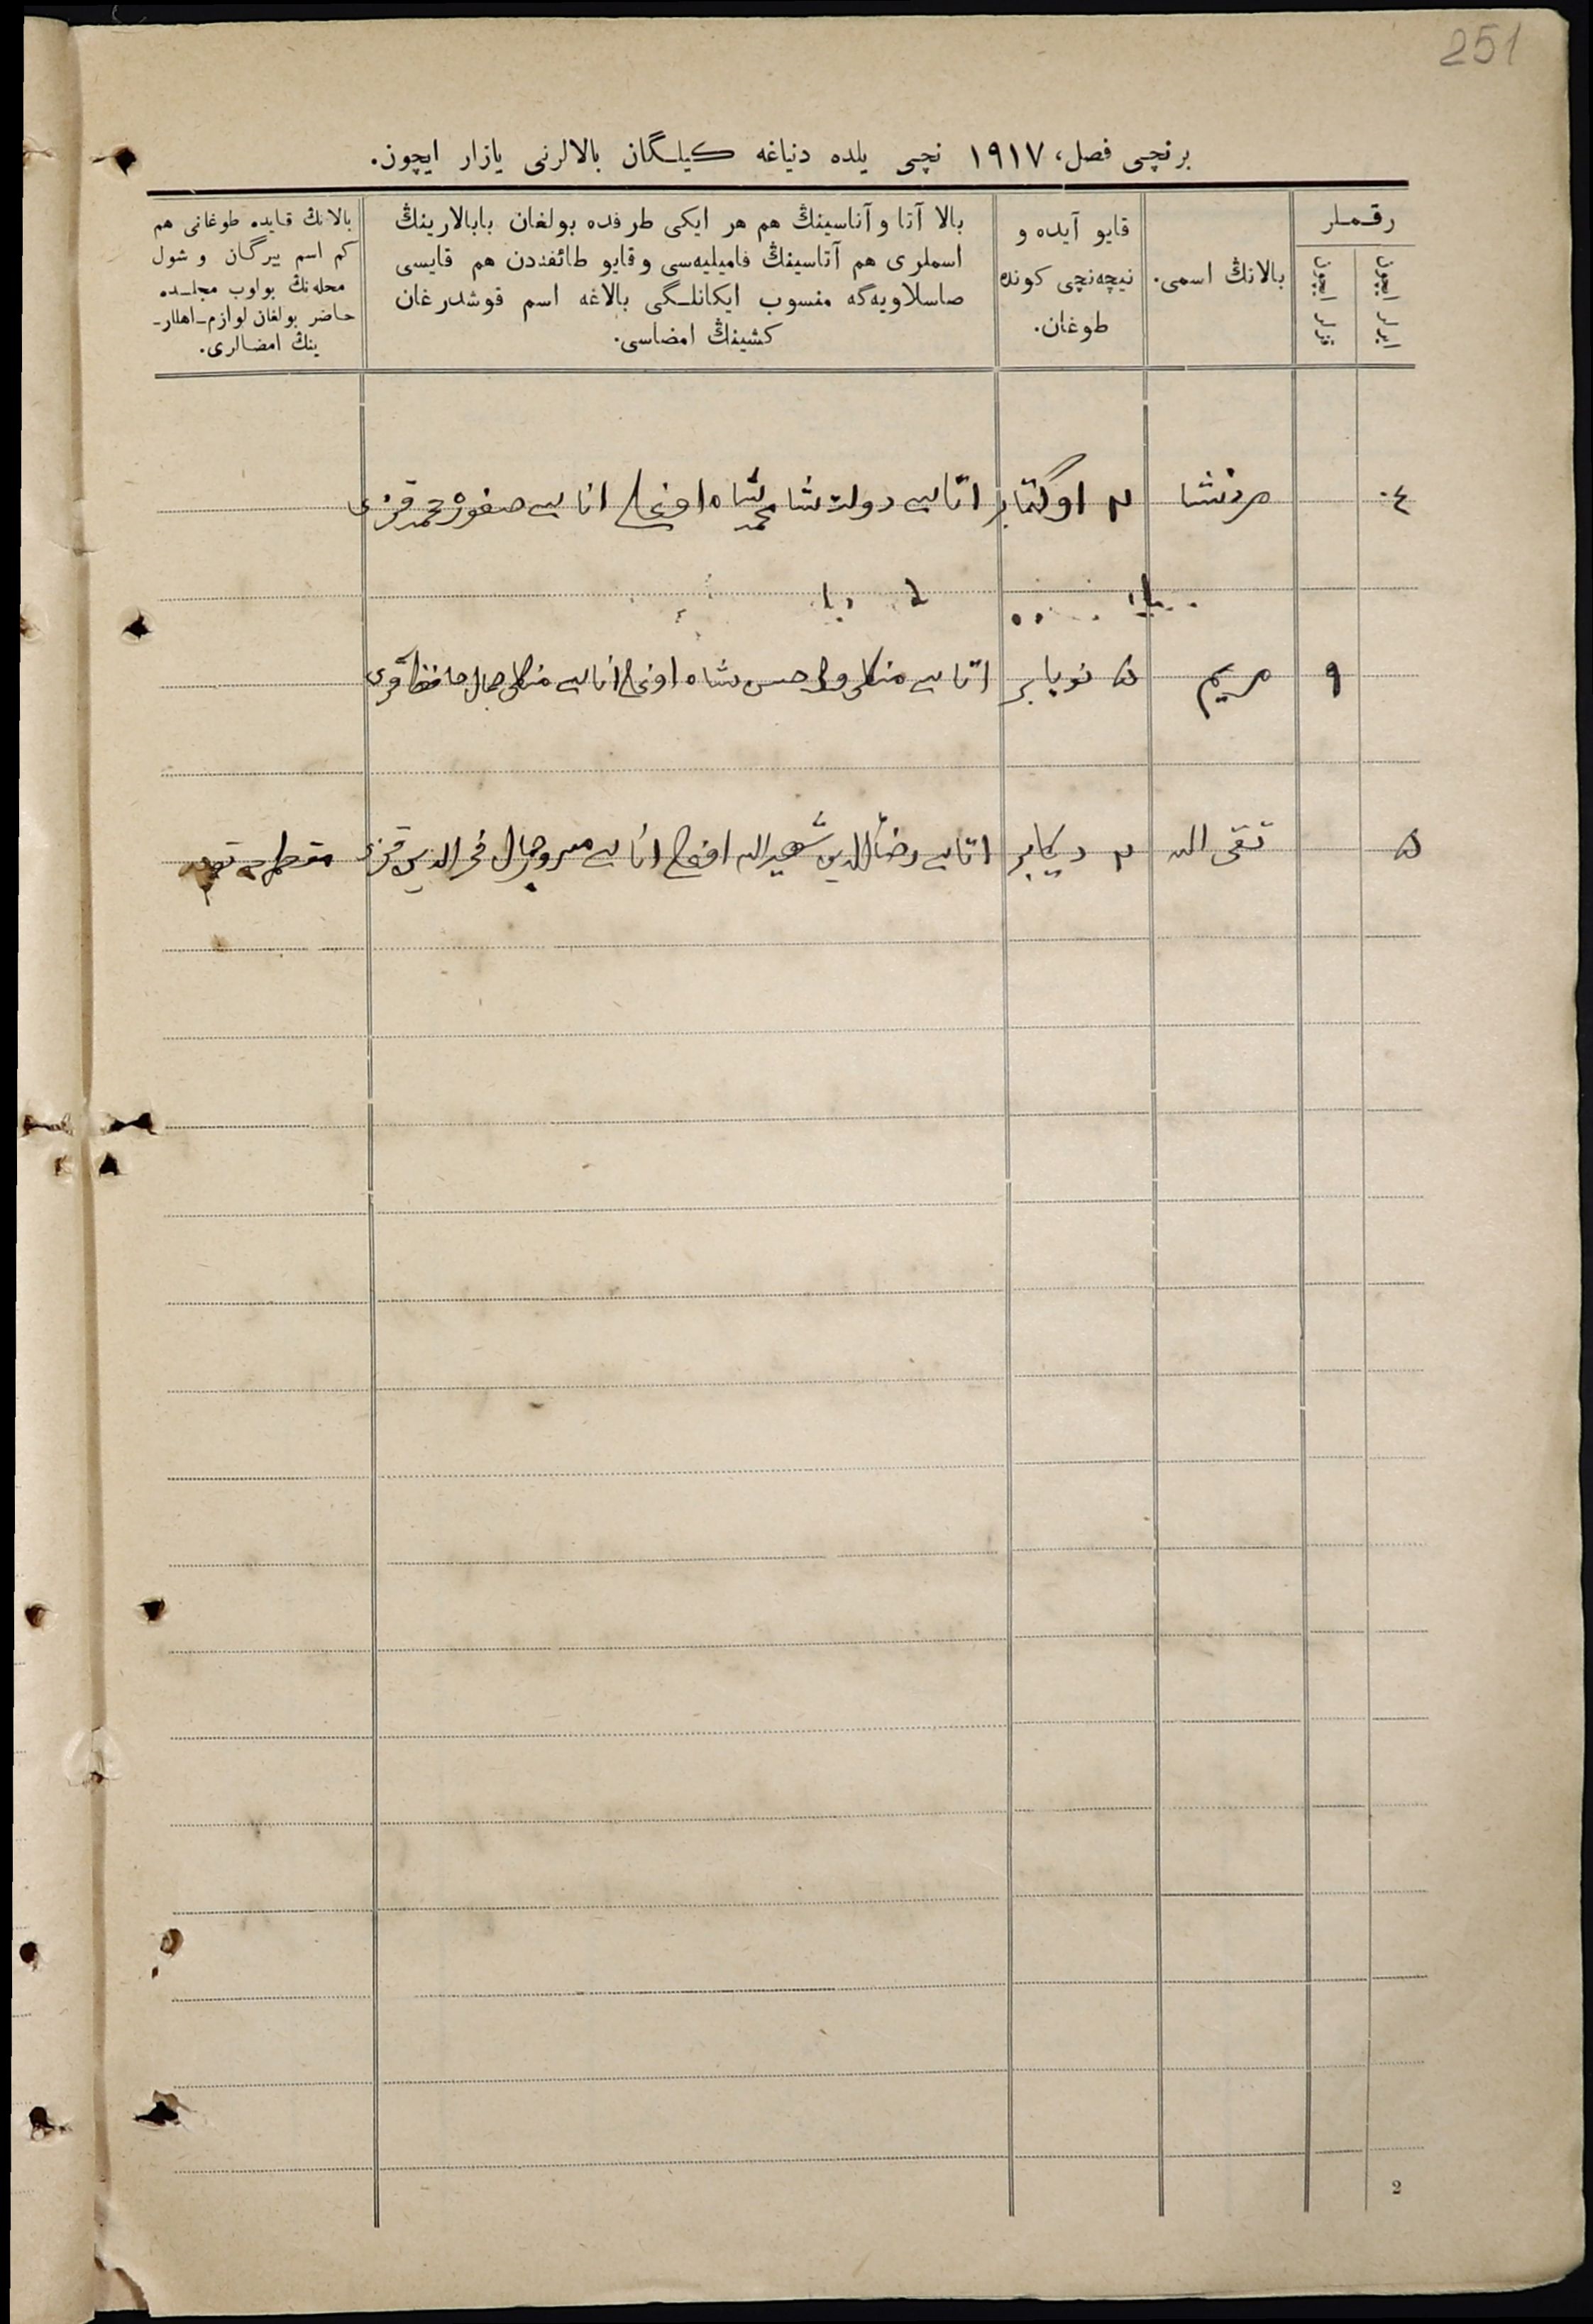 251
برنچی فصل، ١٩١٧ نچی یلده دنیاغه کیلگان بالالرنی یازار ایچون.
رقملر
ایرلر ایچون
قزلر ایچون
بالانڭ اسمی.
قایو آیده و
نیچه‌نچی کونده
طوغان.
بالا آتا و آناسینڭ هم هر ایکی طرفده بولغان بابالارینڭ
اسملری هم آتاسینڭ فامیلیه‌سی و قایو طائفه‌دن هم قایسی
صاسلاویه‌گه منسوب ایکانلگی بالاغه اسم قوشدرغان
کشینڭ امضاسی.
بالانڭ قایده طوغانی هم
کم اسم بیرگان و شول
محله‌نڭ بو اوب مجلسده
حاضر بولغان لوازم اهللار
ینڭ امضالری.
٤ مردنشا ٢ اوکتابر اتاسی دولتشا محمدشاه اوغلی اناسی صفوره محمد قزی
٩ مریم ٥ نویابر اتاسی منکلی ولی حسن شاه اوغلی اناسی منکلی جمال حافظ قزی
٥ تقی الله ٢ دیکابر اتاسی رضاءالدین شهیرالله اوغلی اناسی میروجمال فخرالدین قزی
2